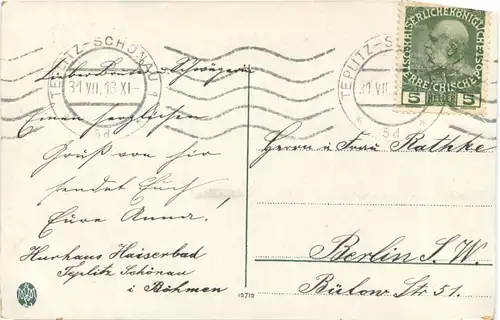 TEPLITZ-SCHÖNAU 1
31 VII. 13 XI-
5d
Lieber Bruder u. Schwägerin
Einen herzlichen
Gruß von hier
sendet Euch
Eure Anna!
Kurhaus Kaiserbad
Teplitz Schönau
i Böhmen
TEPLITZ-S
31 VII.
5d
KAISERLICHE KÖNIGLICHE
5 HELLER 5
Herrn u Frau Rathke
Berlin S. W.
Bülow Str 51.
12719